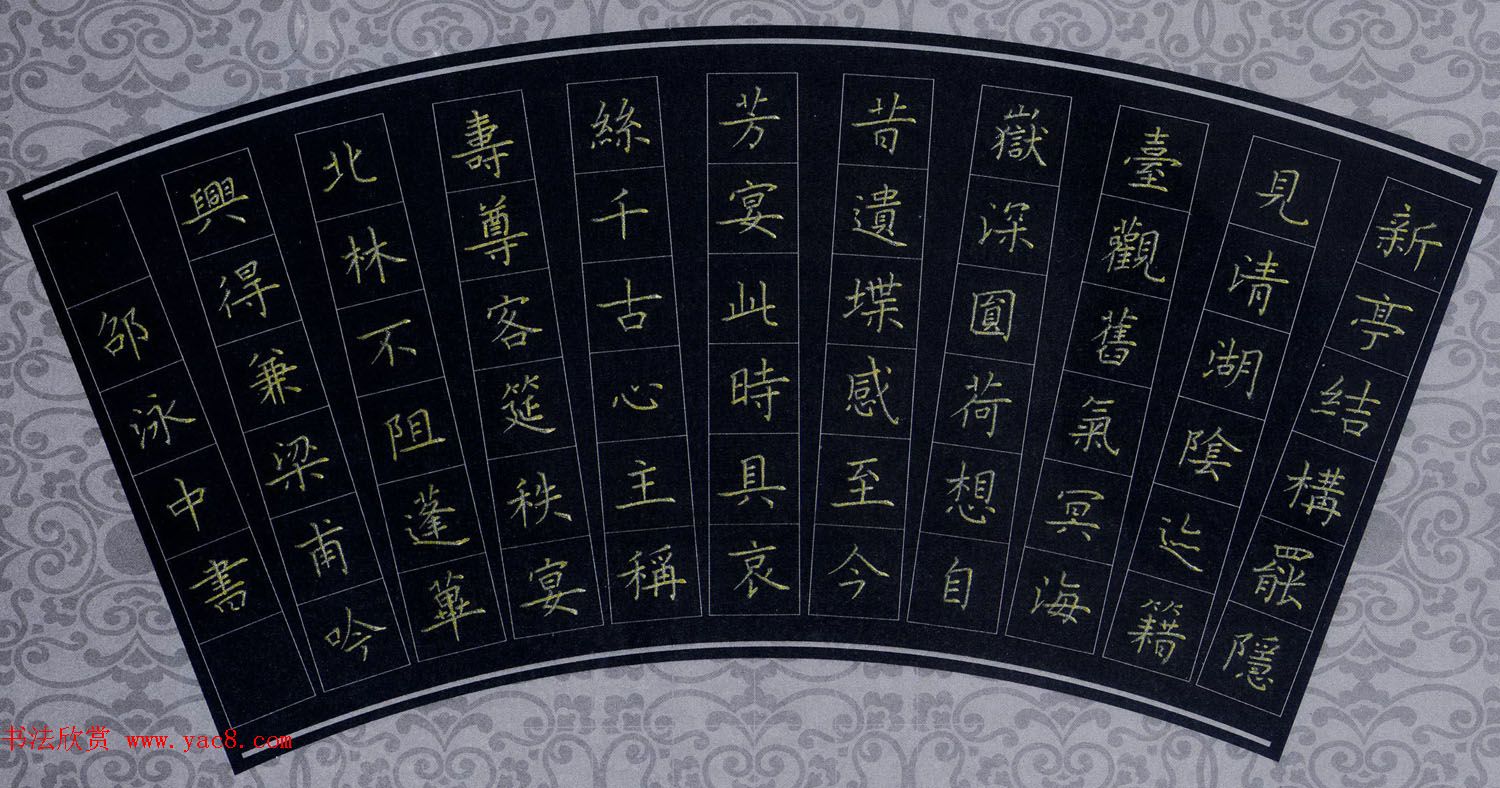 新亭結構罷隱
見清湖陰迹籍
臺觀舊氣冥海
嶽深圓荷想自
昔遺堞感至今
芳宴此時具哀
絲千古心主稱
壽尊客筵秩宴
北林不阻蓬蓽
興得兼梁甫吟
邵泳中書
书法欣赏 www.yac8.com